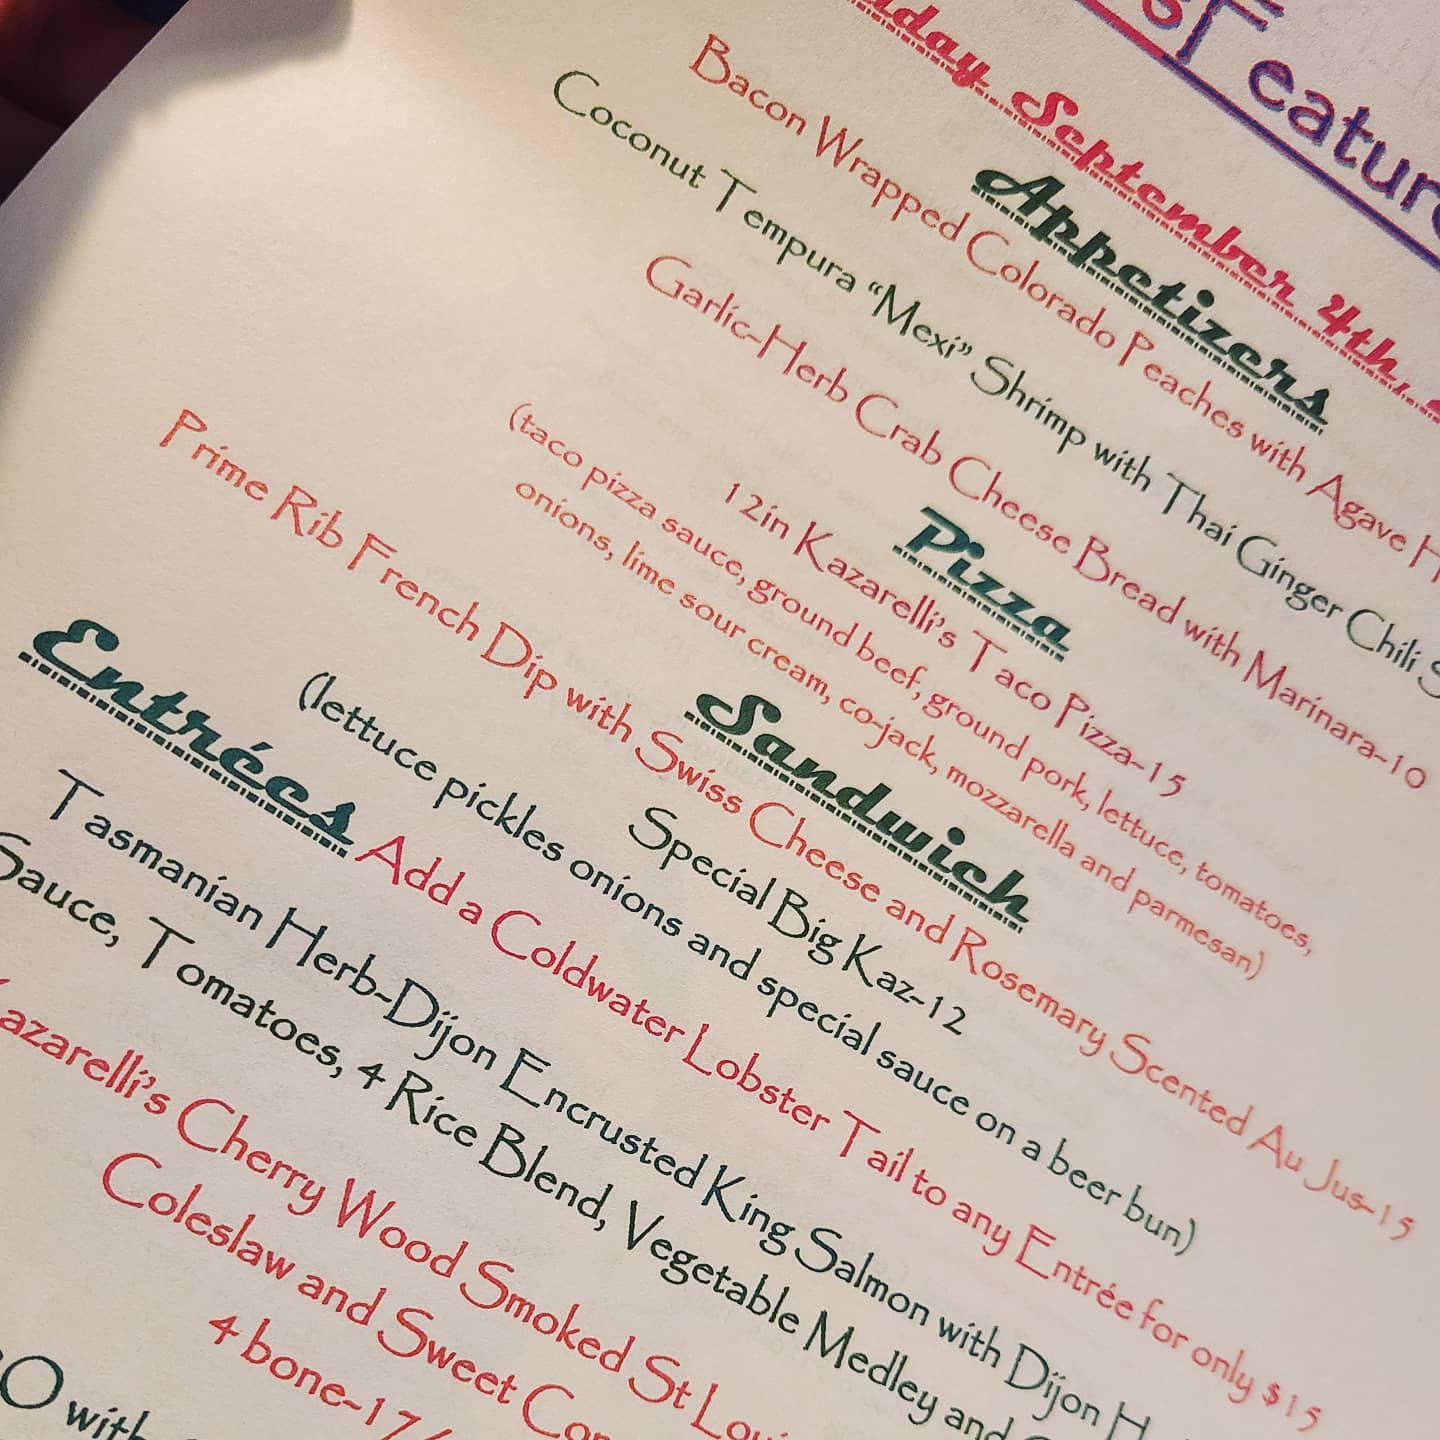 Feature
September 4th,
Appetizers
Bacon Wrapped Colorado Peaches with Agave
Coconut Tempura “Mexi” Shrimp with Thai Ginger Chili
Garlic-Herb Crab Cheese Bread with Marinara-10
Pizza
12in Kazarelli's Taco Pizza-15
(taco pizza sauce, ground beef, ground pork, lettuce, tomatoes,
onions, lime sour cream, co-jack, mozzarella and parmesan)
Sandwich
Prime Rib French Dip with Swiss Cheese and Rosemary Scented Au Jus-15
Special Big Kaz-12
(lettuce pickles onions and special sauce on a beer bun)
Entrées Add a Coldwater Lobster Tail to any Entrée for only $15
Tasmanian Herb-Dijon Encrusted King Salmon with Dijon H
Sauce, Tomatoes, 4 Rice Blend, Vegetable Medley and
Kazarelli's Cherry Wood Smoked St Loui
Coleslaw and Sweet Cor
4 bone-17/
with